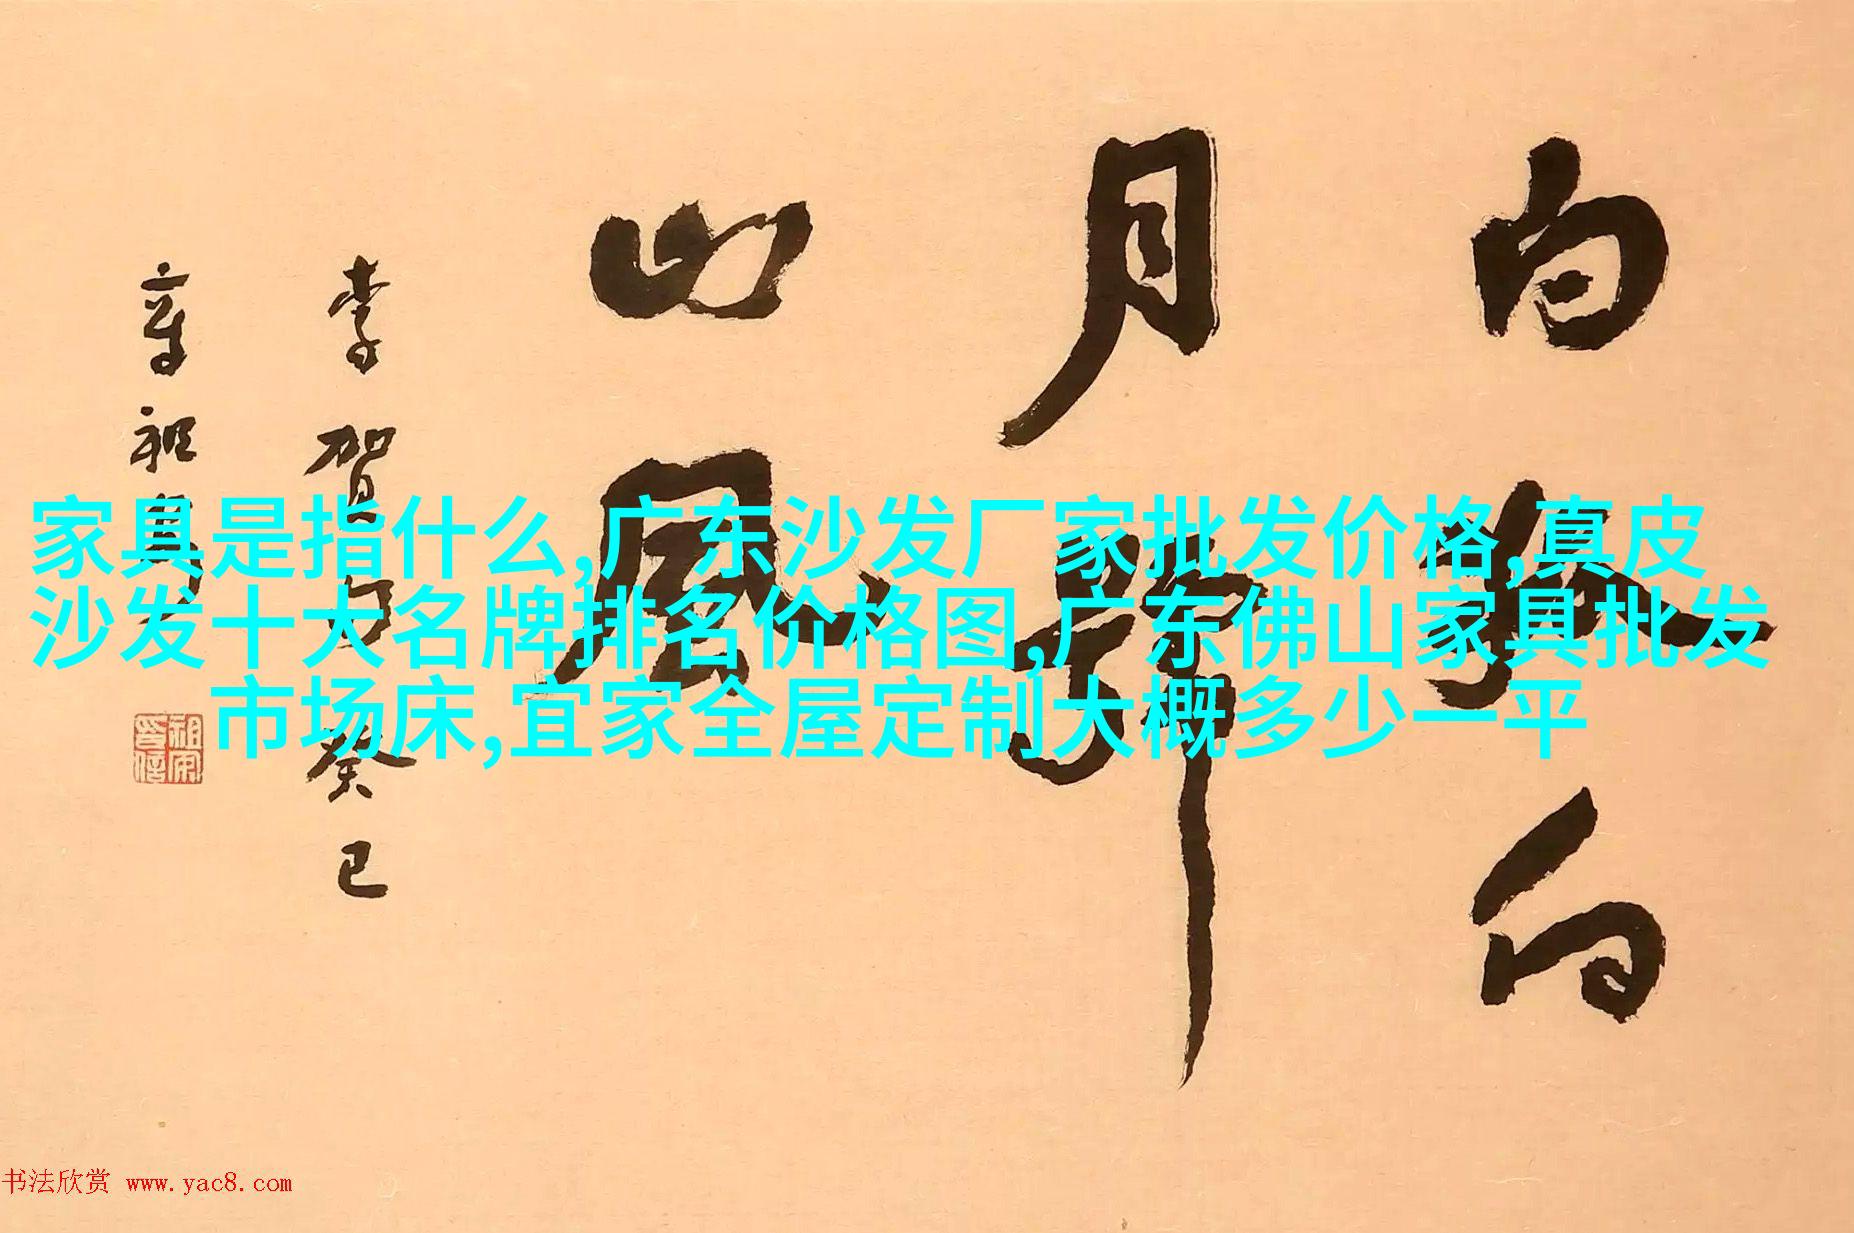 白狐向
月號
山風
李賀句癸巳
章祖安
家具是指什么,广东沙发厂家批发价格,真皮
沙发十大名牌排名价格图,广东佛山家具批发
市场床,宜家全屋定制大概多少一平
书法欣赏 www.yac8.com